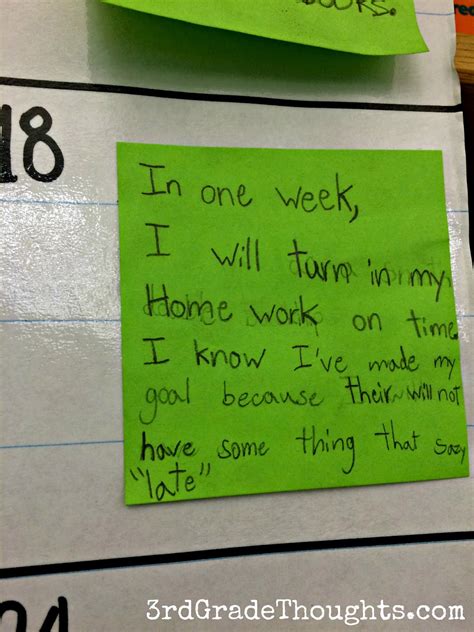 BOOKS.
18
In one week,
I will turn in my
Home work on time
I know I've made my
goal because their will not
have some thing that say
"late"
3rdGradeThoughts.com